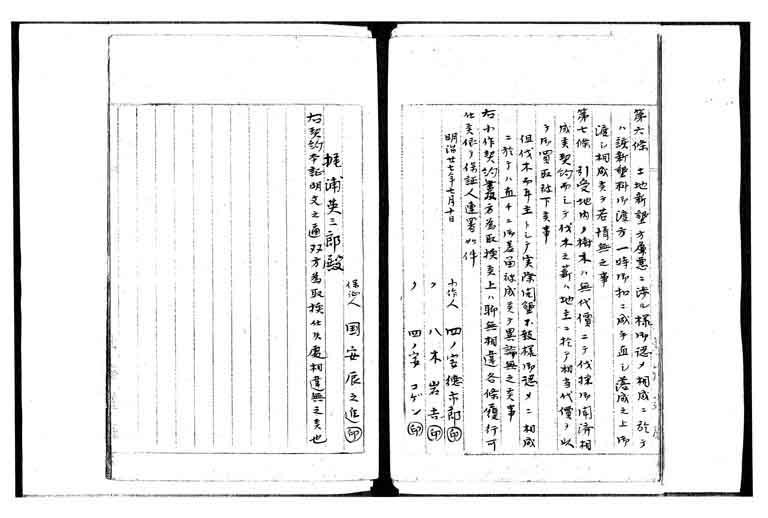 第六條 土地新墾方廉悪ニ渉ル様御認メ相成ニ於テ
ハ該新墾料御渡方一時御扣ニ成手直シ落成之上御
渡シ相成候テ若情無之事
第七條 引受地内ノ樹木ハ無代價ニテ伐採御聞済相
成候契約而シテ伐木之薪ハ地主ニ於テ相当代價ヲ以
テ御買取被下候事
但伐木而耳主トシテ実際開墾不致様御認メニ相成
ニ於テハ直チニ御差留被成候テ異論無之候事
右小作契約書双方為取換候上ハ聊無相違各條履行可
仕候依テ保証人連署如件
明治廿七年七月十日
小作人 四ノ宮徳市郎 印
〃 八木岩吉 印
〃 四ノ宮コゲン 印
保証人 国安辰之進 印
梶浦英三郎殿
右契約本証明文之通双方為取換仕候處相違無之候也